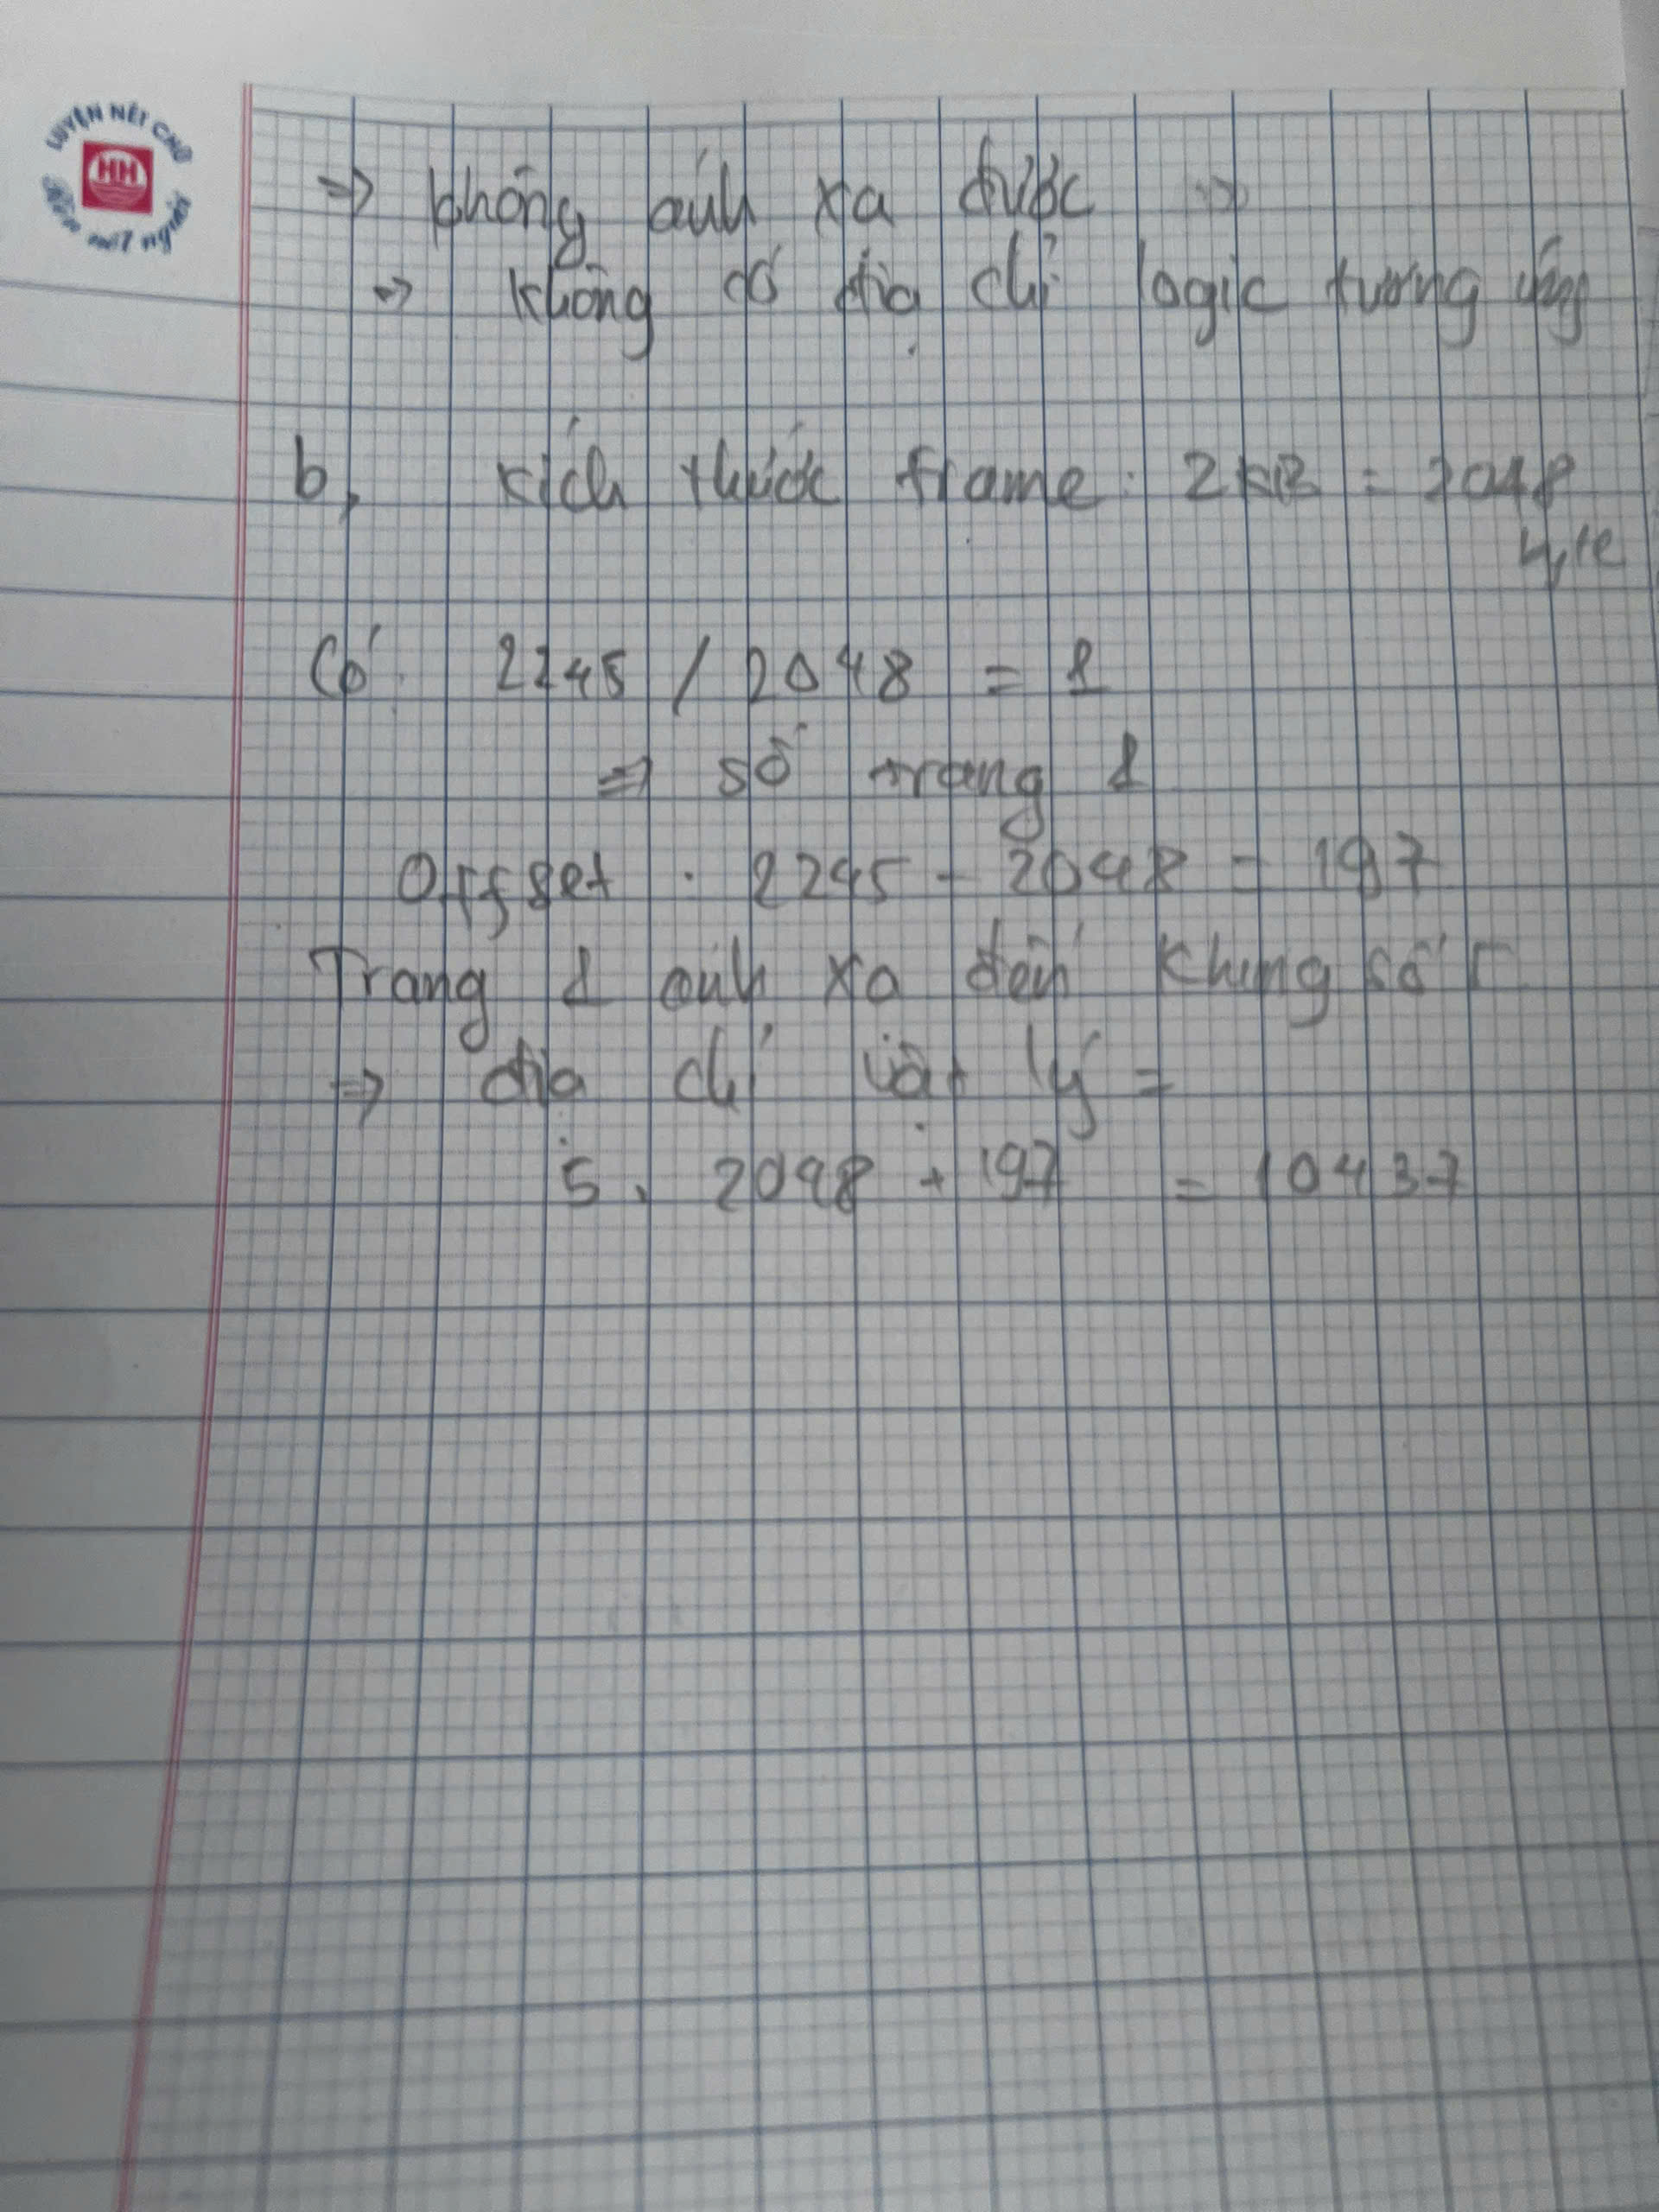 LUYỆN NÉT CHỮ
HH
rèn nết người
=> không ánh xạ được =>
=> không có địa chỉ logic tương ứng
b, kích thước frame: 2KB = 2048
byte
Có: 2245 / 2048 = 1
=> số trang 1
Offset : 2245 - 2048 = 197
Trang 1 ánh xạ đến khung số 5
=> địa chỉ vật lý =
5 . 2048 + 197 = 10437